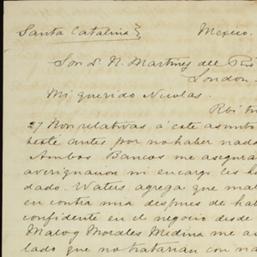 Santa Catalina} Mexico.
Son D. N. Martinez del Rio
London.
Mi querido Nicolas.
27 Non relativas á este asunto
este antes por no haber nada
Ambos Bancos me asegura
averiguasen mi encargo les h
dado. Waters agrega que mal
en contra mia despues de hab
confidente en el negocio desde
Morales Medina me a
lado que no tratarian con na